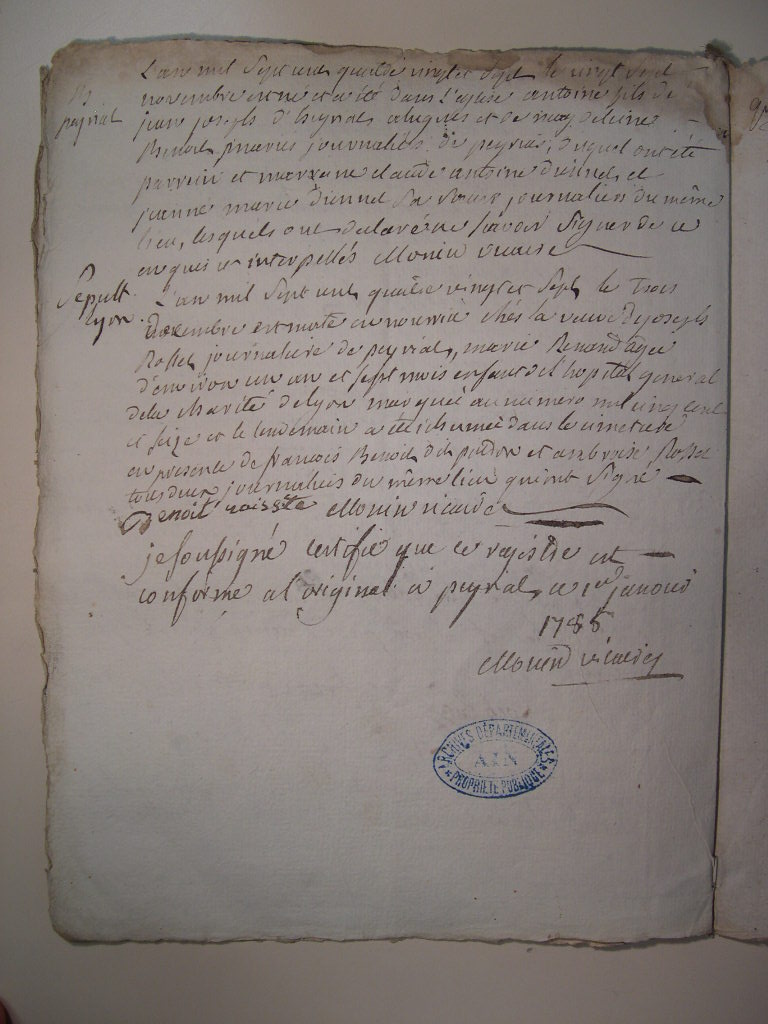 B
peyriat
L'an mil sept cent quatre vingt et sept le vingt sept
novembre est né et a été dans L'église antoine fils de
jean joseph et de magdeleine
Benoit mariés journaliers de peyriat, duquel ont été
parrein et marraine claude antoine et
jeanne marie sa soeur journaliers du même
lieu, lesquels ont declaré ne savoir signer de ce
enquis et interpellés Monin vicaire
Sepult.
lyon.
L'an mil sept cent quatre vingt et sept le trois
decembre est morte en nourrice chés la veuve joseph
Rosset journaliere de peyriat, marie Renand agée
d'environ un an et sept mois enfant de l'hopital general
de la charité de lyon marquée au numero mil cinq cent
et seize et le lendemain a été inhumée dans le cimetiere
en presence de françois Benoit dit et ambroise Rosset
tous deux journaliers du même lieu qui ont signé
Benoit Monin vicaire
je soussigné certifie que ce registre est
conforme a l'original a peyriat, ce 1er janvier
1788
Monin vicaire
ARCHIVES DÉPARTEMENTALES
AIN
PROPRIÉTÉ PUBLIQUE